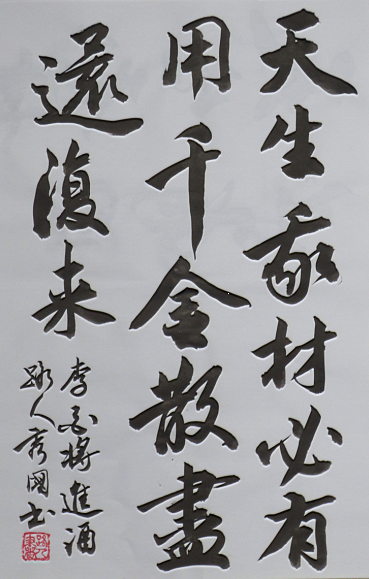 天生我材必有
用千金散盡
還復来
李白将進酒
路人秀国书